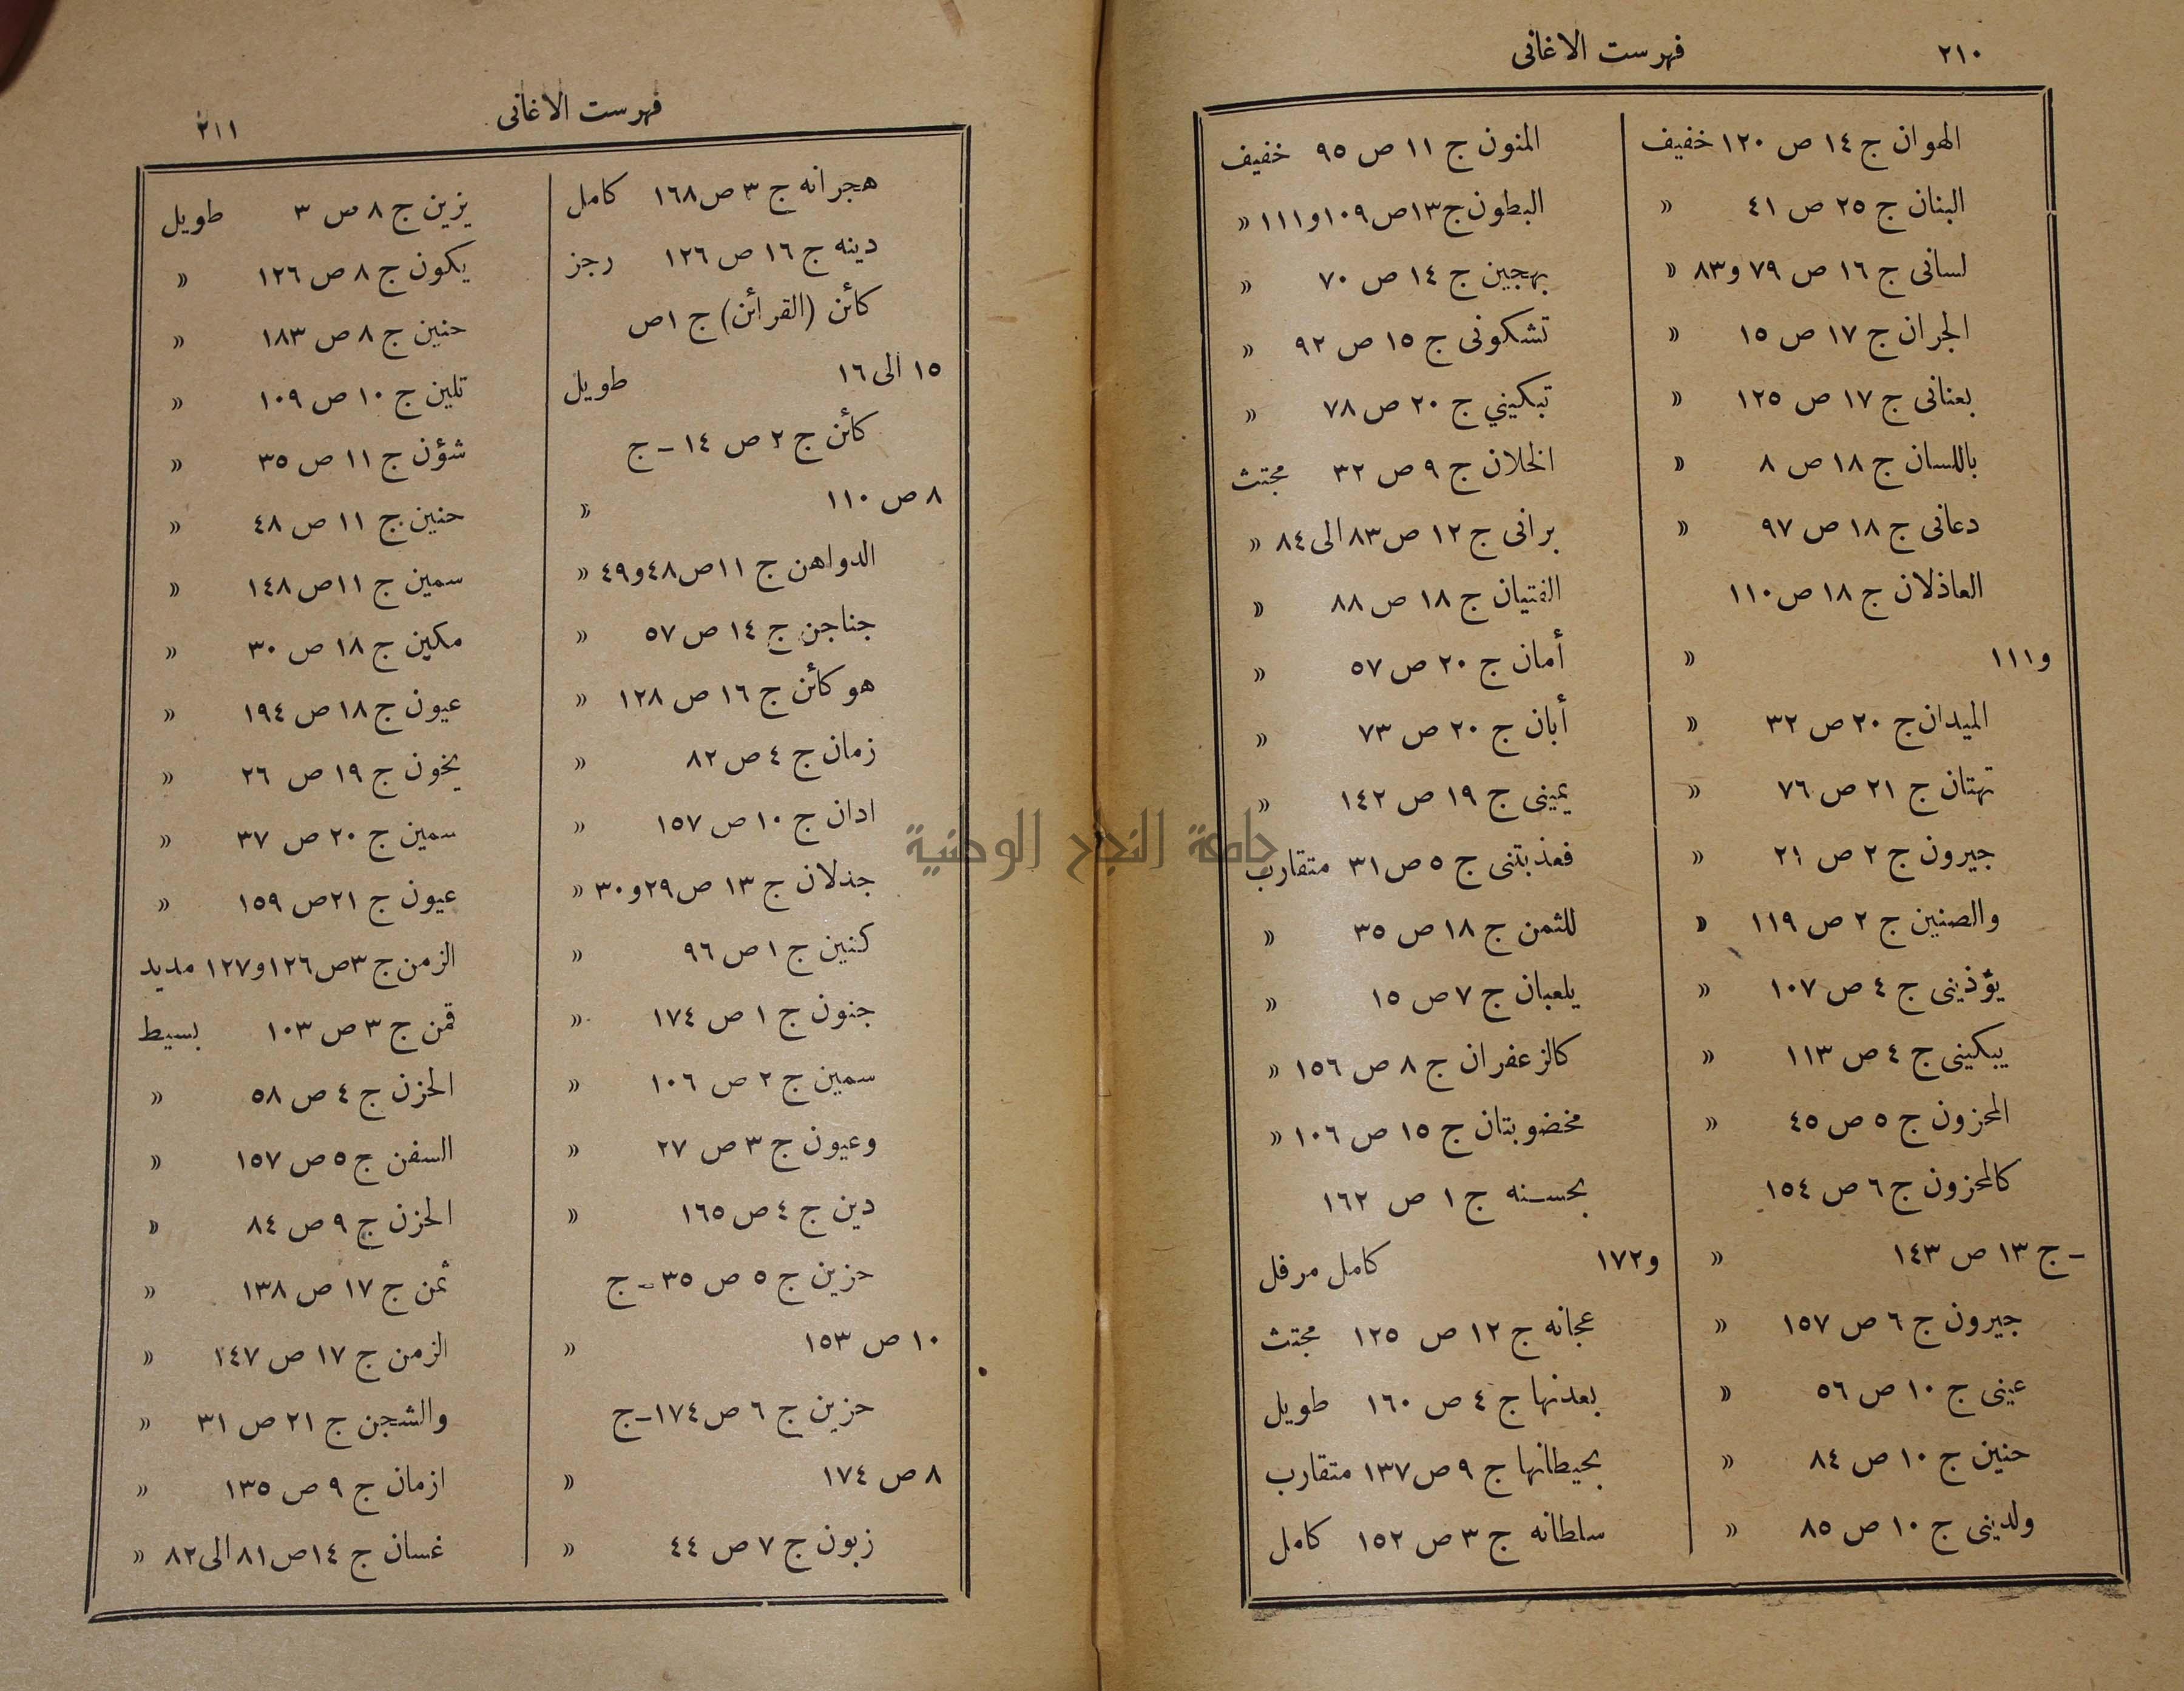 ٢١٠
فهرست الاغانى
الهوان ج ١٤ ص ١٢٠ خفيف
البنان ج ٢٥ ص ٤١ »
لسانى ج ١٦ ص ٧٩ و٨٣ »
الجران ج ١٧ ص ١٥ »
بعنانى ج ١٧ ص ١٢٥ »
باللسان ج ١٨ ص ٨ »
دعانى ج ١٨ ص ٩٧ »
العاذلان ج ١٨ ص ١١٠
و١١١ »
الميدان ج ٢٠ ص ٣٢ »
تهتان ج ٢١ ص ٧٦ »
جيرون ج ٢ ص ٢١ »
والصنين ج ٢ ص ١١٩ »
يؤذينى ج ٤ ص ١٠٧ »
يبكينى ج ٤ ص ١١٣ »
المحزون ج ٥ ص ٤٥ »
كالمحزون ج ٦ ص ١٥٤
– ج ١٣ ص ١٤٣ »
جيرون ج ٦ ص ١٥٧ »
عينى ج ١٠ ص ٥٦ »
حنين ج ١٠ ص ٨٤ »
ولدينى ج ١٠ ص ٨٥ »
المنون ج ١١ ص ٩٥ خفيف
البطون ج ١٣ ص ١٠٩ و١١١ »
بهجين ج ١٤ ص ٧٠ »
تشكونى ج ١٥ ص ٩٢ »
تبكيني ج ٢٠ ص ٧٨ »
الخلان ج ٩ ص ٣٢ مجتث
برانى ج ١٢ ص ٨٣ الى ٨٤ »
الفتيان ج ١٨ ص ٨٨ »
أمان ج ٢٠ ص ٥٧ »
أبان ج ٢٠ ص ٧٣ »
يمينى ج ١٩ ص ١٤٢ »
فعذبتنى ج ٥ ص ٣١ متقارب
للثمن ج ١٨ ص ٣٥ »
يلعبان ج ٧ ص ١٥ »
كالزعفران ج ٨ ص ١٥٦ »
مخضوبتان ج ١٥ ص ١٠٦ »
بحسنه ج ١ ص ١٦٢
و١٧٢ كامل مرفل
عجانه ج ١٢ ص ١٢٥ مجتث
بعدنها ج ٤ ص ١٦٠ طويل
بحيطانها ج ٩ ص ١٣٧ متقارب
سلطانه ج ٣ ص ١٥٢ كامل
فهرست الاغانى
٢١١
هجرانه ج ٣ ص ١٦٨ كامل
دينه ج ١٦ ص ١٢٦ رجز
كأن (القرائن) ج ١ ص
١٥ الى ١٦ طويل
كائن ج ٢ ص ١٤ – ج
٨ ص ١١٠ »
الدواهن ج ١١ ص ٤٨ و٤٩ »
جناجن ج ١٤ ص ٥٧ »
هو كائن ج ١٦ ص ١٢٨ »
زمان ج ٤ ص ٨٢ »
ادان ج ١٠ ص ١٥٧ »
جذلان ج ١٣ ص ٢٩ و٣٠ »
كنين ج ١ ص ٩٦ »
جنون ج ١ ص ١٧٤ »
سمين ج ٢ ص ١٠٦ »
وعيون ج ٣ ص ٢٧ »
دين ج ٤ ص ١٦٥ »
حزين ج ٥ ص ٣٥ - ج
١٠ ص ١٥٣ »
حزين ج ٦ ص ١٧٤ – ج
٨ ص ١٧٤ »
زبون ج ٧ ص ٤٤ »
يزين ج ٨ ص ٣ طويل
يكون ج ٨ ص ١٢٦ »
حنين ج ٨ ص ١٨٣ »
تلين ج ١٠ ص ١٠٩ »
شؤن ج ١١ ص ٣٥ »
حنين ج ١١ ص ٤٨ »
سمين ج ١١ ص ١٤٨ »
مكين ج ١٨ ص ٣٠ »
عيون ج ١٨ ص ١٩٤ »
يخون ج ١٩ ص ٢٦ »
سمين ج ٢٠ ص ٣٧ »
عيون ج ٢١ ص ١٥٩ »
الزمن ج ٣ ص ١٢٦ و١٢٧ مديد
قمن ج ٣ ص ١٠٣ بسيط
الحزن ج ٤ ص ٥٨ »
السفن ج ٥ ص ١٥٧ »
الحزن ج ٩ ص ٨٤ »
ثمن ج ١٧ ص ١٣٨ »
الزمن ج ١٧ ص ١٤٧ »
والشجن ج ٢١ ص ٣١ »
ازمان ج ٩ ص ١٣٥ »
غسان ج ١٤ ص ٨١ الى ٨٢ »
جامعة النجاح الوطنية